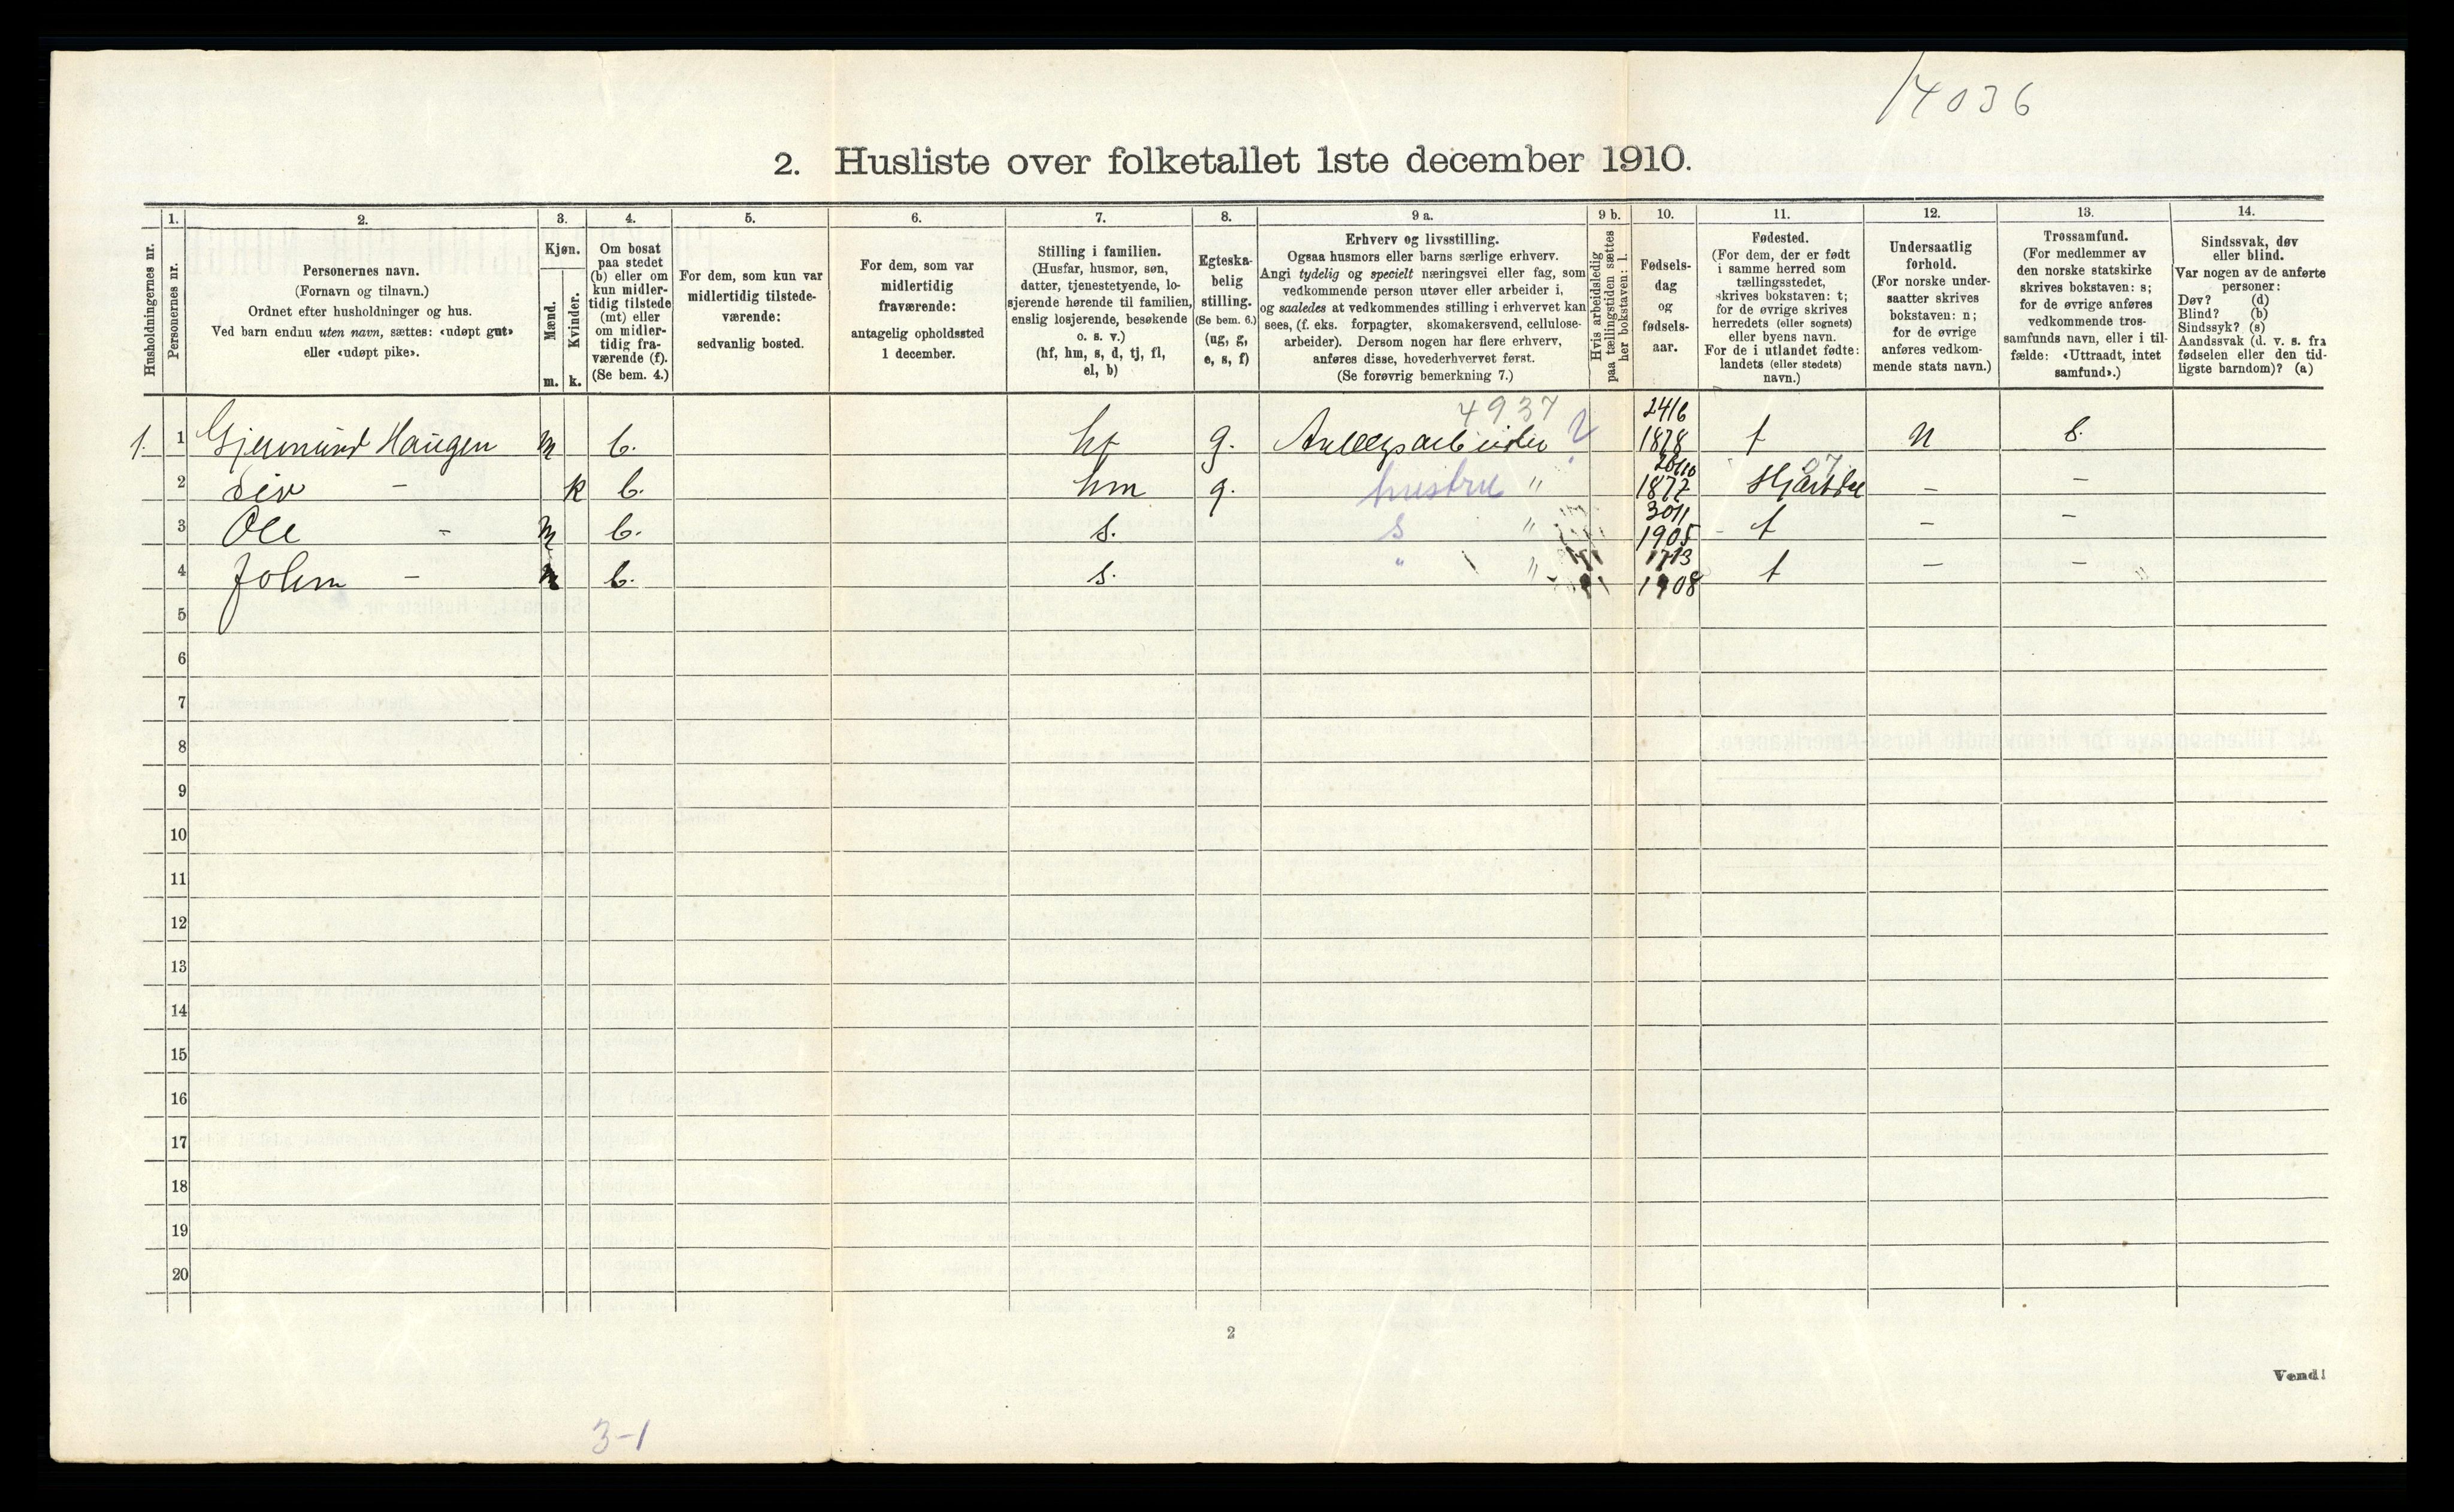 14036
2. Husliste over folketallet 1ste december 1910.
Husholdningernes nr.
1.
Personernes nr.
2.
Personernes navn.
(Fornavn og tilnavn.)
Ordnet efter husholdninger og hus.
Ved barn endnu uten navn, sættes: «udøpt gut»
eller «udøpt pike».
3.
Kjøn.
Mænd.
Kvinder.
m. k.
4.
Om bosat
paa stedet
(b) eller om
kun midler-
tidig tilstede
(mt) eller
om midler-
tidig fra-
værende (f).
(Se bem. 4.)
5.
For dem, som kun var
midlertidig tilstede-
værende:
sedvanlig bosted.
6.
For dem, som var
midlertidig
fraværende:
antagelig opholdssted
1 december.
7.
Stilling i familien.
(Husfar, husmor, søn,
datter, tjenestetyende, lo-
sjerende hørende til familien,
enslig losjerende, besøkende
o. s. v.)
(hf, hm, s, d, tj, fl,
el, b)
8.
Egteska-
belig
stilling.
(Se bem. 6.)
(ug, g,
e, s, f)
9 a.
Erhverv og livsstilling.
Ogsaa husmors eller barns særlige erhverv.
Angi tydelig og specielt næringsvei eller fag, som
vedkommende person utøver eller arbeider i,
og saaledes at vedkommendes stilling i erhvervet kan
sees, (f. eks. forpagter, skomakersvend, cellulose-
arbeider). Dersom nogen har flere erhverv,
anføres disse, hovederhvervet først.
(Se forøvrig bemerkning 7.)
9 b.
Hvis arbeidsledig
paa tællingstiden sættes
her bokstaven: l.
10.
Fødsels-
dag
og
fødsels-
aar.
11.
Fødested.
(For dem, der er født
i samme herred som
tællingsstedet,
skrives bokstaven: t;
for de øvrige skrives
herredets (eller sognets)
eller byens navn.
For de i utlandet fødte:
landets (eller stedets)
navn.)
12.
Undersaatlig
forhold.
(For norske under-
saatter skrives
bokstaven: n;
for de øvrige
anføres vedkom-
mende stats navn.)
13.
Trossamfund.
(For medlemmer av
den norske statskirke
skrives bokstaven: s;
for de øvrige anføres
vedkommende tros-
samfunds navn, eller i til-
fælde: «Uttraadt, intet
samfund».)
14.
Sindssvak, døv
eller blind.
Var nogen av de anførte
personer:
Døv? (d)
Blind? (b)
Sindssyk? (s)
Aandssvak (d. v. s. fra
fødselen eller den tid-
ligste barndom)? (a)
4937
1. 1 Gjermund Haugen m b. hf g. Anlægsarbeider ? 24/6 1878 t n s.
07
2 Siv - k b. hm g. hustru " 28/10 1872 Hjartdal - -
3 Ole - m b. s. s " 30/11 1905 - t - -
4 John - m b. s. " " 17/3 1908 t - -
5
6
7
8
9
10
11
12
13
14
15
16
17
18
19
20
2
Vend!
3-1